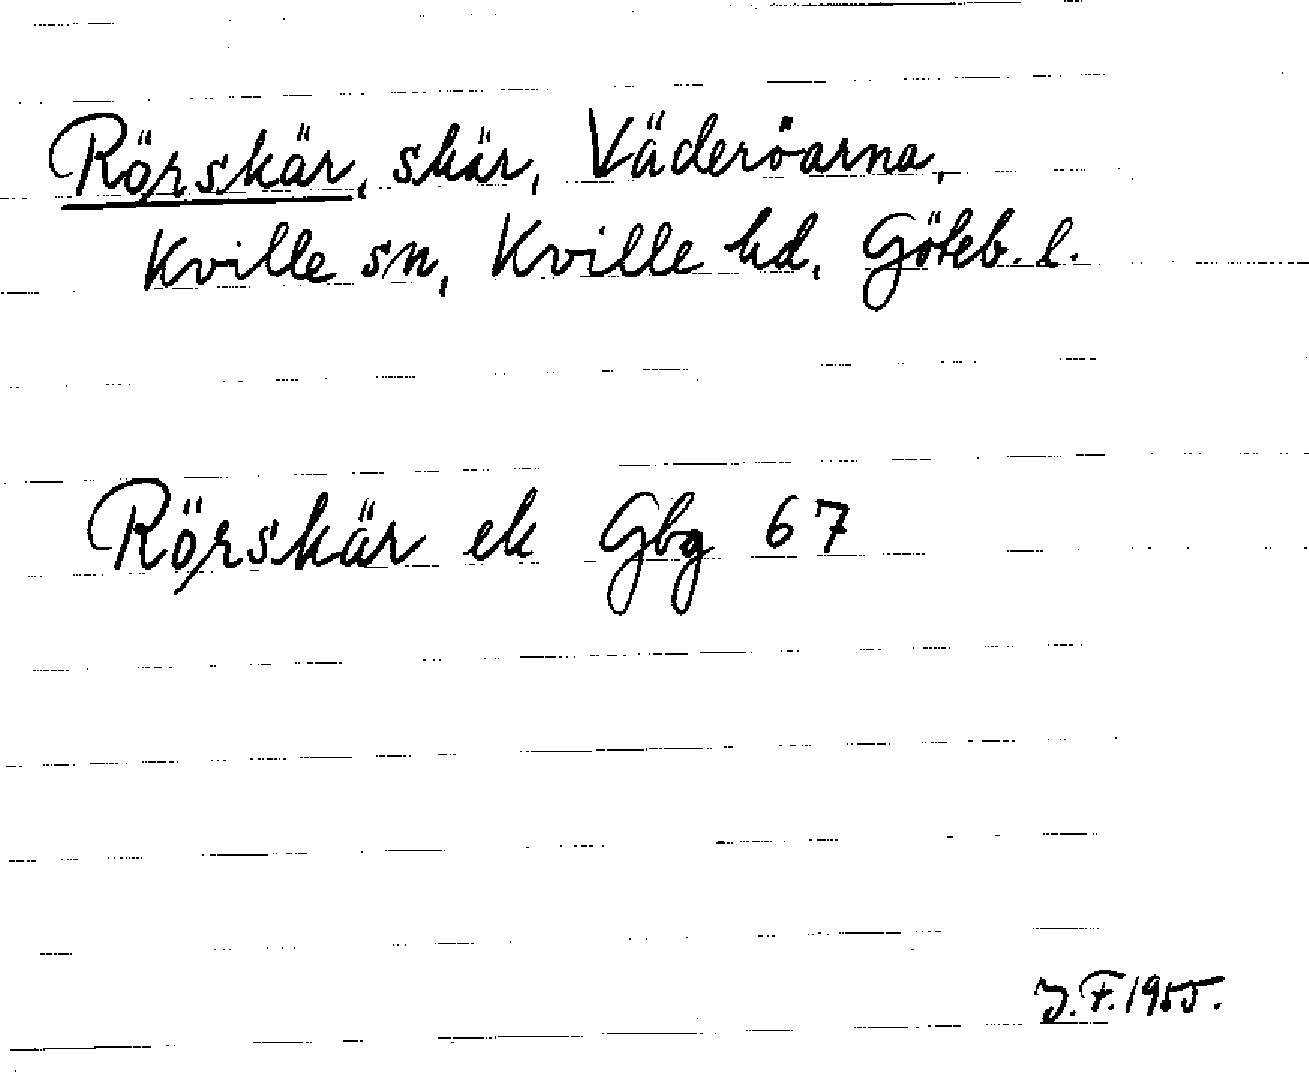 Rörskär, skär, Väderöarna,
Kville sn, Kville hd, Göteb. l.
Rörskär ek Gbg 67
J.F. 1955.